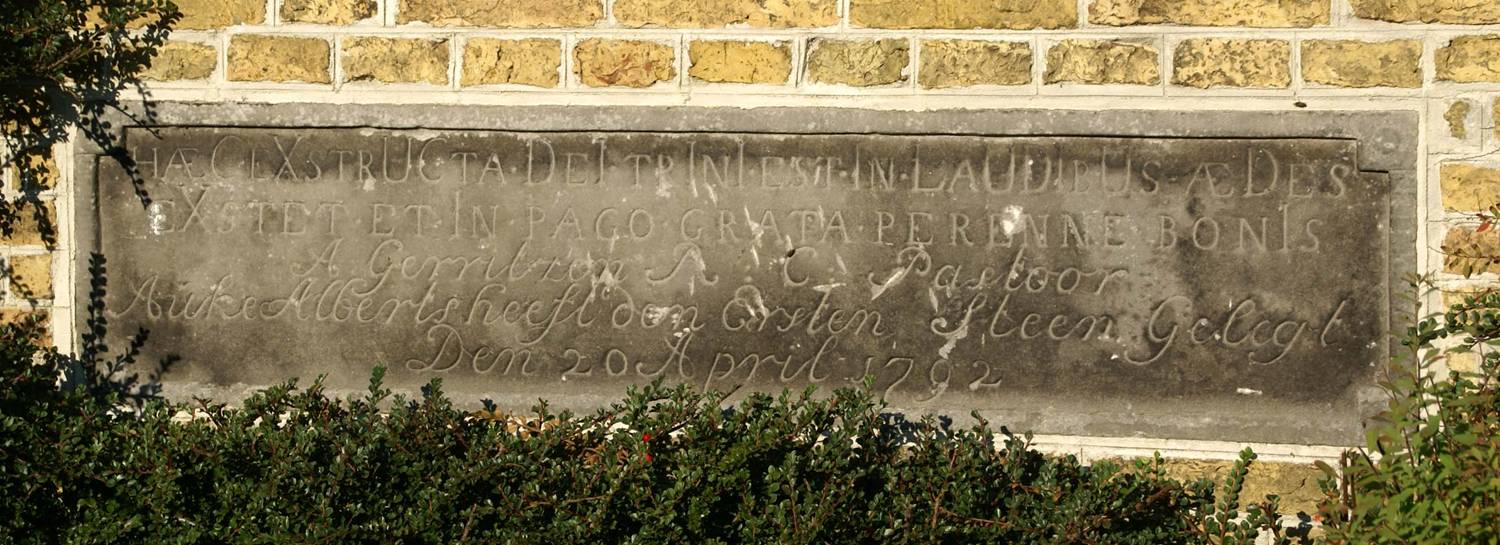 HÆC EXSTRUCTA DEI TRINI EST·IN·LAUDIBUS·ÆDES
EXSTET·ET·IN PAGO·GRATA·PERENNE BONIS
A Gerritzen R. C. Pastoor
Auke Alberts heeft den Ersten Steen Gelegt
Den 20 April 1792